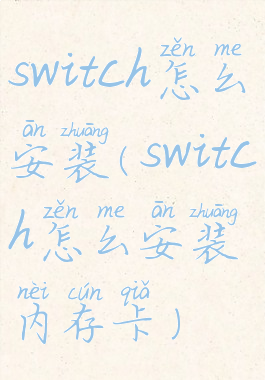 zěn me
switch怎么
ān zhuāng
安装(switc
zěn me ān zhuāng
h怎么安装
nèi cún qiǎ
内存卡)